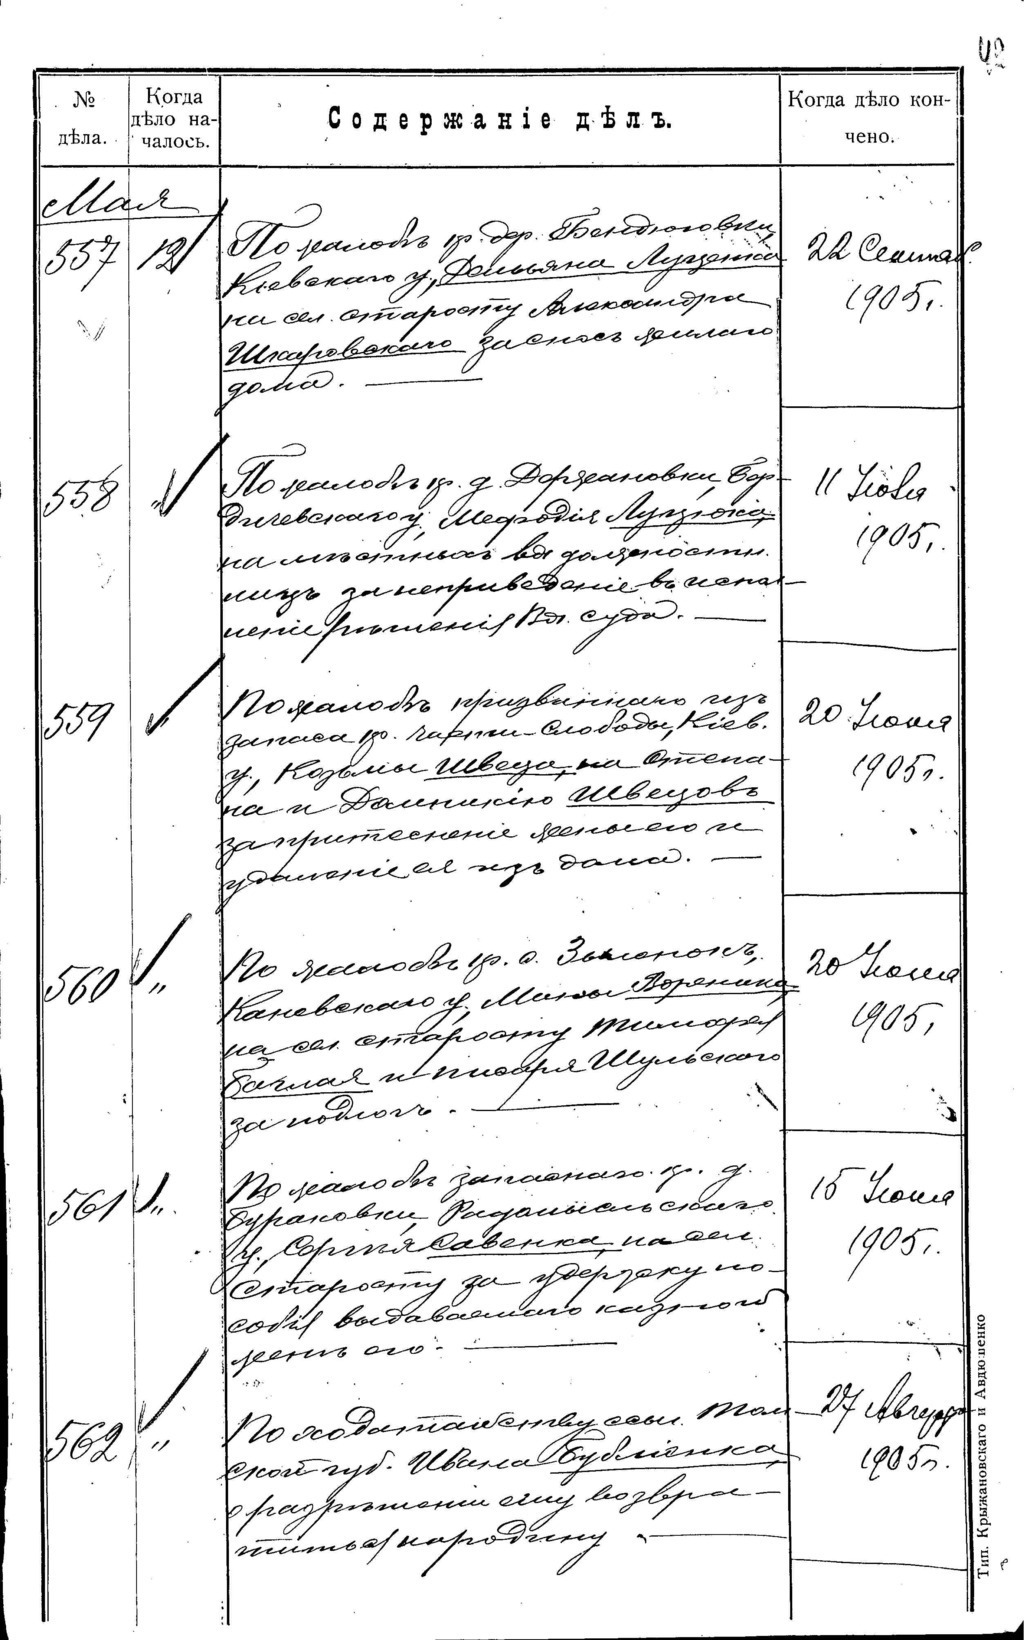 42
№
дѣла.
Когда
дѣло на-
чалось.
Содержаніе дѣлъ.
Когда дѣло кон-
чено.
Мая
557
12
По жалобѣ кр. дер. Бендюговки,
Кіевскаго у., Демьяна Луценка
на сел. старосту Александра
Шкаровскаго за сносъ жилаго
дома. —
22 Сентяб.
1905 г.
558
"
По жалобѣ кр. д. Держановки, Бер-
дичевскаго у., Мефодія
на мѣстныхъ вол. должностн.
лицъ за неприведеніе въ испол-
неніе рѣшенія Вол. суда. —
11 Іюля
1905 г.
559
"
По жалобѣ призваннаго изъ
запаса кр. Слободы, Кіев.
у., Козьмы Швеца, на Степа-
на и Доминикію Швецовъ
за притесненіе жены его и
удаленіе ея изъ дома. —
20 Іюня
1905 г.
560
"
По жалобѣ кр. с. Зеленокъ,
Каневскаго у. Мины
на сел. старосту Тимофея
Баглая и писаря Шульскаго
за подлогъ. —
20 Іюня
1905 г.
561
"
По жалобѣ запаснаго кр. д.
Бураковки, Радомысльскаго
у., Сергѣя Савенка, на сел.
старосту за удержку по-
собія выдаваемаго казною
женѣ его. —
15 Іюня
1905 г.
562
"
По ходатайству ссыл. Том-
ской губ. Ивана Бубліенка,
о разрѣшеніи ему возвра-
титься на родину —
27 Августа
1905 г.
Тип. Крыжановскаго и Авдюшенко